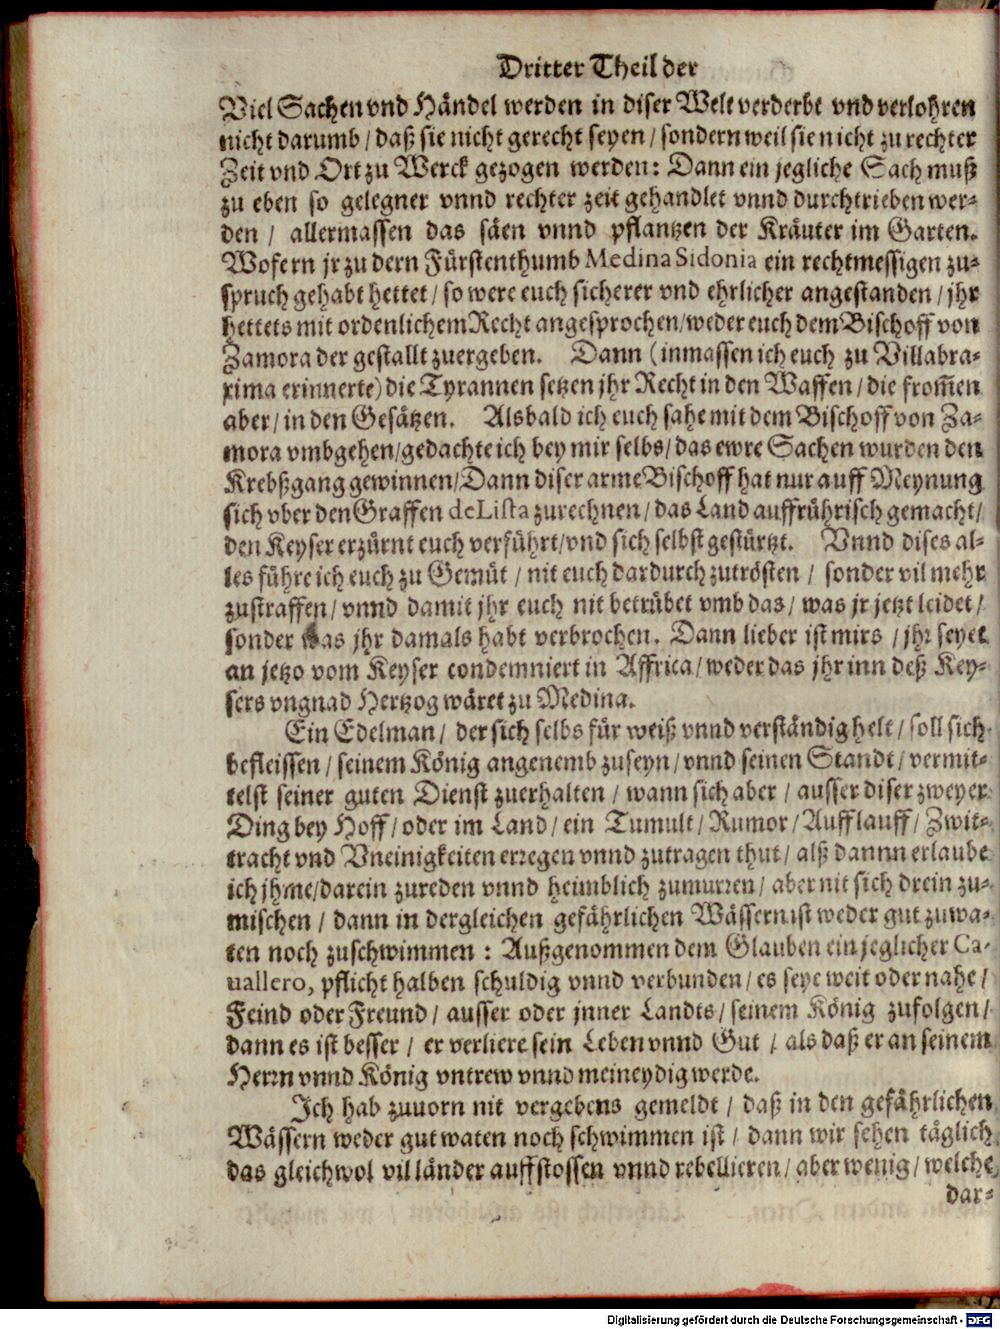 Dritter Theil der
Viel Sachen vnd Händel werden in diser Welt verderbt vnd verlohren
nicht darumb / daß sie nicht gerecht seyen / sondern weil sie nicht zu rechter
Zeit vnd Ort zu Werck gezogen werden: Dann ein jegliche Sach muß
zu eben so gelegner vnnd rechter zeit gehandlet vnnd durchtrieben wer-
den / allermassen das säen vnnd pflantzen der Kräuter im Garten.
Wofern jr zu dem Fürstenthumb Medina Sidonia ein rechtmessigen zu-
spruch gehabt hettet / so were euch sicherer vnd ehrlicher angestanden / jhr
hettets mit ordenlichem Recht angesprochen/weder euch dem Bischoff von
Zamora der gestallt zuergeben. Dann (inmassen ich euch zu Villabra-
xima erinnerte) die Tyrannen setzen jhr Recht in den Waffen / die from̃en
aber / in den Gesätzen. Alsbald ich euch sahe mit dem Bischoff von Za-
mora vmbgehen/gedachte ich bey mir selbs / das ewre Sachen wurden den
Krebßgang gewinnen/Dann diser arme Bischoff hat nur auff Meynung
sich vber den Graffen de Lista zurechnen / das Land auffrührisch gemacht/
den Keyser erzürnt euch verführt/vnd sich selbst gestürtzt. Vnnd dises al-
les führe ich euch zu Gemüt / nit euch dardurch zutrösten / sonder vil mehr
zustraffen / vnnd damit jhr euch nit betrübet vmb das / was jr jetzt leidet /
sonder was jhr damals habt verbrochen. Dann lieber ist mirs / jhr seyet
an jetzo vom Keyser condemniert in Affrica / weder das jhr inn deß Key-
sers vngnad Hertzog wäret zu Medina.
Ein Edelman / der sich selbs für weiß vnnd verständig helt / soll sich
befleissen / seinem König angenemb zuseyn / vnnd seinen Standt / vermit-
telst seiner guten Dienst zuerhalten / wann sich aber / ausser diser zweyer
Ding bey Hoff / oder im Land / ein Tumult / Rumor / Aufflauff / Zwit-
tracht vnd Vneinigkeiten erregen vnnd zutragen thut / alß dannn erlaube
ich jhme/darein zureden vnnd heimblich zumurren / aber nit sich drein zu-
mischen / dann in dergleichen gefährlichen Wässern ist weder gut zuwa-
ten noch zuschwimmen : Außgenommen dem Glauben ein jeglicher Ca-
uallero, pflicht halben schuldig vnnd verbunden / es seye weit oder nahe /
Feind oder Freund / ausser oder jnner Landts / seinem König zufolgen /
dann es ist besser / er verliere sein Leben vnnd Gut / als daß er an seinem
Herrn vnnd König vntrew vnnd meineydig werde.
Ich hab zuuorn nit vergebens gemeldt / daß in den gefährlichen
Wässern weder gut waten noch schwimmen ist / dann wir sehen täglich
das gleichwol vil länder auffstossen vnnd rebellieren / aber wenig / welche
dar-
Digitalisierung gefördert durch die Deutsche Forschungsgemeinschaft - DFG